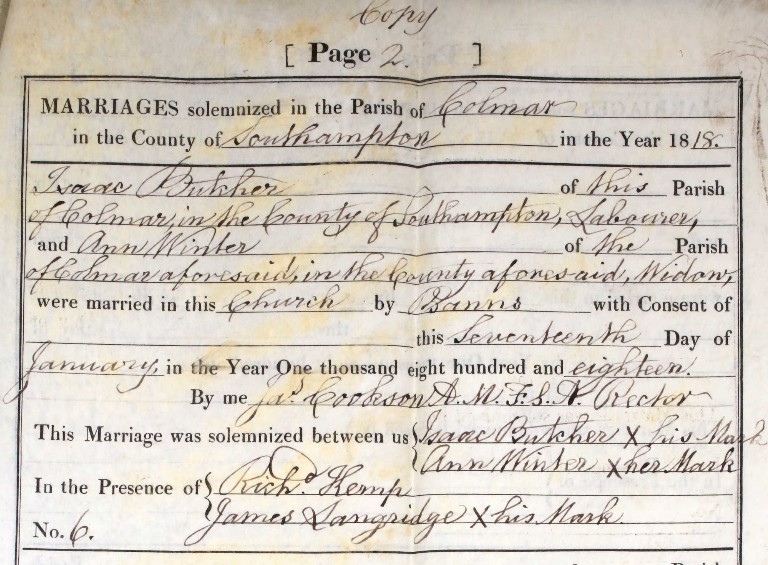 Copy
[ Page 2. ]
MARRIAGES solemnized in the Parish of Colmar
in the County of Southampton in the Year 1818.
Isaac Butcher of this Parish
of Colmar, in the County of Southampton, Labourer,
and Ann Winter of the Parish
of Colmar aforesaid, in the County aforesaid, Widow,
were married in this Church by Banns with Consent of
this Seventeenth Day of
January in the Year One thousand eight hundred and eighteen.
By me Jas. Cookson A.M. F.S.A. Rector
This Marriage was solemnized between us { Isaac Butcher X his Mark
Ann Winter X her Mark
In the Presence of { Richd. Kemp
James Langridge X his Mark.
No. 6.